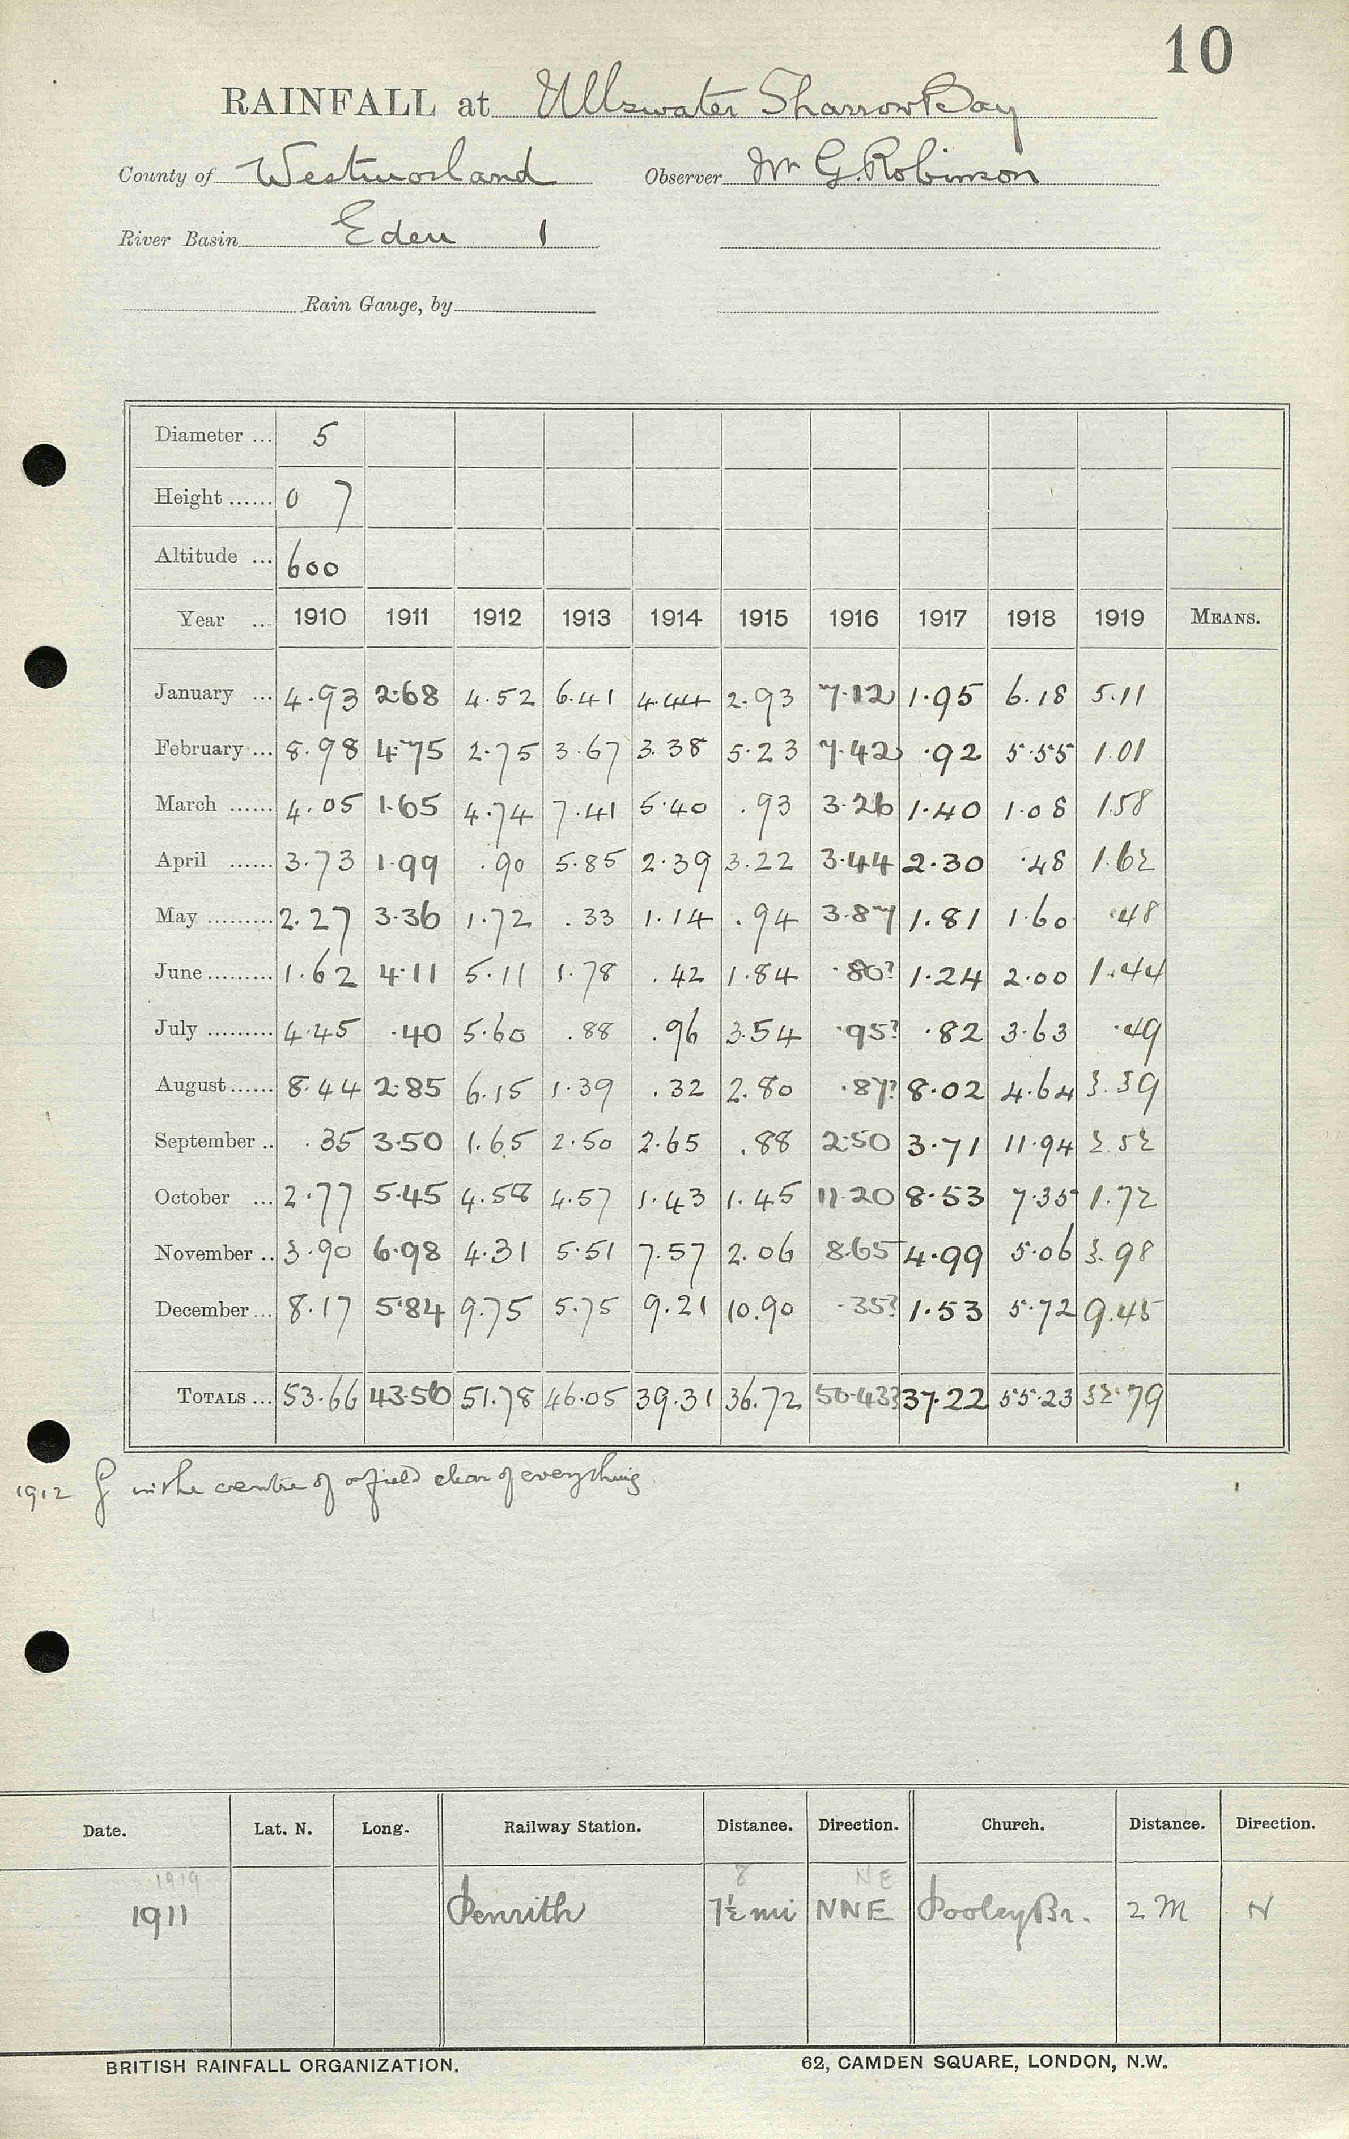 10
RAINFALL at Ullswater Sharrow Bay
County of Westmorland Observer Mr G. Robinson
River Basin Eden 1
Rain Gauge, by
Diameter ... 5
Height ...... 0 7
Altitude ... 600
Year ... 1910 1911 1912 1913 1914 1915 1916 1917 1918 1919 MEANS.
January ... 4.93 2.68 4.52 6.41 4.44 2.93 7.12 1.95 6.18 5.11
February ... 8.98 4.75 2.75 3.67 3.38 5.23 7.42 .92 5.55 1.01
March ...... 4.05 1.65 4.74 7.41 5.40 .93 3.26 1.40 1.08 1.58
April ...... 3.73 1.99 .90 5.85 2.39 3.22 3.44 2.30 .48 1.62
May ......... 2.27 3.36 1.72 .33 1.14 .94 3.87 1.81 1.60 .48
June ......... 1.62 4.11 5.11 1.78 .42 1.84 .80? 1.24 2.00 1.44
July ......... 4.45 .40 5.60 .88 .96 3.54 .95? .82 3.63 .49
August ...... 8.44 2.85 6.15 1.39 .32 2.80 .87? 8.02 4.64 3.39
September .. .35 3.50 1.65 2.50 2.65 .88 2.50 3.71 11.94 2.52
October ... 2.77 5.45 4.58 4.57 1.43 1.45 11.20 8.53 7.35 1.72
November .. 3.90 6.98 4.31 5.51 7.57 2.06 8.65 4.99 5.06 3.98
December ... 8.17 5.84 9.75 5.75 9.21 10.90 .35? 1.53 5.72 9.45
TOTALS ... 53.66 43.56 51.78 46.05 39.31 36.72 50.43? 37.22 55.23 32.79
1912 G in the centre of a field clear of everything.
Date. Lat. N. Long. Railway Station. Distance. Direction. Church. Distance. Direction.
1919 8 NE
1911 Penrith 7½ mi NNE Pooley Br. 2 M N
BRITISH RAINFALL ORGANIZATION. 62, CAMDEN SQUARE, LONDON, N.W.